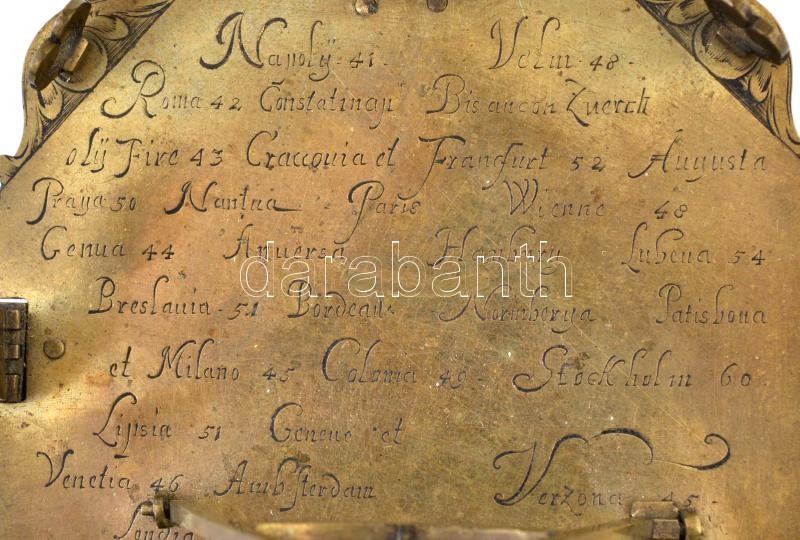 Napolÿ · 41 · Velm · 48 ·
Roma 42 Constatinap Bisancon Zuerch
olÿ Fire 43 Craccouia et Francfurt 52 Augusta
Praga 50 Nantua Paris Wienne 48
Genua 44 Anuersa Hamburg Lubeua 54
darabanth
Breslauia · 51 Bordeau Normberga Patisbona
et Milano 45 Colonia 49 · Stockholm 60
Lipsia 51 Geneue et
Venetia 46 Ambsterdam Verzona 45 ·
Londia